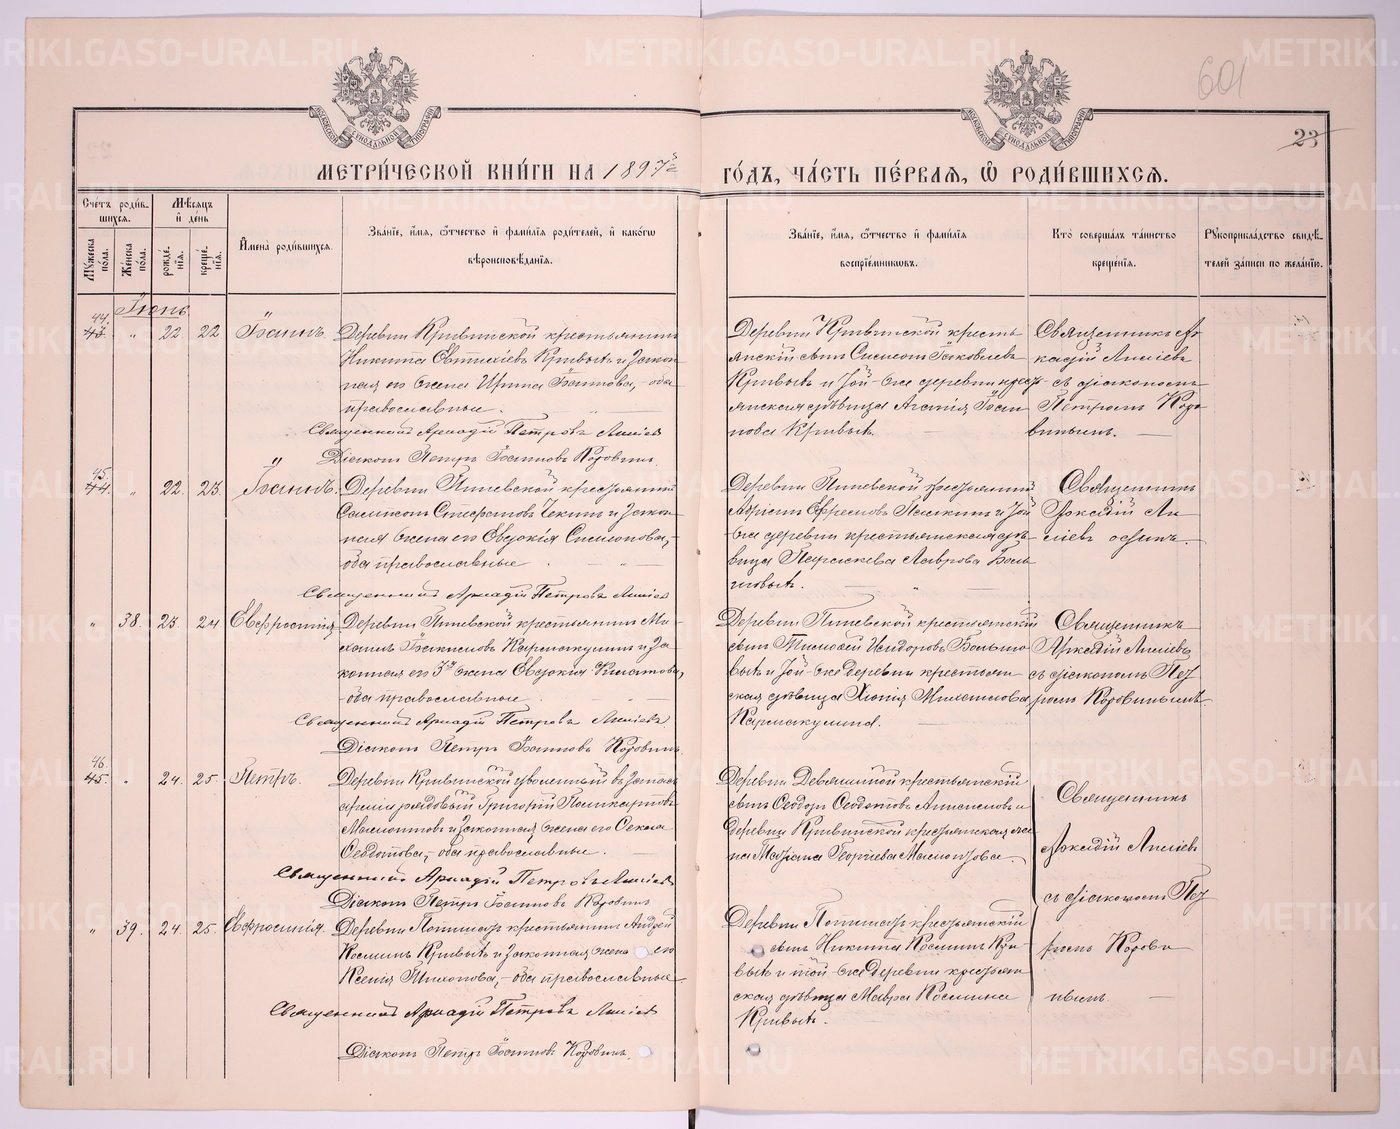 601
23
МЕТРИ́ЧЕСКОЙ КНИ́ГИ НА 1897й
ГО́ДЪ, ЧА́СТЬ ПЕ́РВАЯ, Ѽ РОДИ́ВШИХСЯ.
Сче́тъ роди́вшихся.
Мꙋ́жеска по́ла.
Же́нска по́ла.
Мѣ́сяцъ и де́нь
рожде́нїя.
креще́нїя.
Имена̀ роди́вшихся.
Зва́нїе, и́мя, ѻ́тчество и фами́лїя роди́телей, и како́гѡ
вѣроисповѣ́данїя.
Зва́нїе, и́мя, ѻ́тчество и фами́лїя
воспрїе́мникѡвъ.
Кто̀ соверша́лъ та́инство
креще́нїя.
Рꙋкоприкла́дство свидѣ́-
телей за́писи по жела́нїю.
Іюнь.
44.
43. " 22 22 Іоаннъ.
Деревни Кривинской крестьянинъ
Никита Евтихіевъ Кривыхъ и закон-
ная его жена Ирина Іоаннова,- оба
православные.
Священникъ Аркадій Петровъ Лисіевъ
Діаконъ Петръ Іоанновъ Коровинъ.
Деревни Кривинской кресть
янскій сынъ Симеонъ Іаковлевъ
Кривыхъ и той-же деревни крест-
янская дѣвица Агапія Іоан
нова Кривыхъ.
Священникъ Ар
кадій Лисіевъ
съ діакономъ
Петромъ Коро
винымъ.
45.
44. " 22. 23. Іоаннъ.
Деревни Пичевской крестьянинъ
Сампсонъ Стефановъ Чекинъ и закон-
ная жена его Евдокія Симеонова,-
оба православные
Священникъ Аркадій Петровъ Лисіевъ
Деревни Пичевской крестьянинъ
Ефремовъ Пашкинъ и той
же деревни крестьянская дѣ-
вица Параскева Лаврова Боль
шовыхъ.
Священникъ
Аркадій Ли-
сіевъ одинъ.
" 38. 23. 24 Евфросинія
Деревни Пичевской крестьянинъ Ми-
хаилъ Іоакимовъ Кармакулинъ и за
конная его жена Евдокія
- оба православные
Священникъ Аркадій Петровъ Лисіевъ
Діаконъ Петръ Іоанновъ Коровинъ.
Деревни Пичевской крестьянскій
сынъ Тимоѳей Исидоровъ Большо
выхъ и той-же Деревни крестьян-
ская дѣвица Хіонія Михаилова
Кармакулина.
Священникъ
Аркадій Лисіевъ
съ діакономъ Пет
ромъ Коровинымъ.
46.
45. " 24. 25. Петръ.
Деревни Кривинской уволенный въ запасъ
арміи рядовый Григорій Поликарповъ
и законная жена его Ѳекла
Ѳедотова,- оба православные.
Священникъ Аркадій Петровъ Лисіевъ
Діаконъ Петръ Іоанновъ Коровинъ.
Деревни крестьянскій
сынъ Ѳеодоръ Ѳеодотовъ и
Деревни Кривинской крестьянская же
на Георгіева
Священникъ
Аркадій Лисіевъ
съ діакономъ Пет
ромъ Корови
нымъ.
" 39. 24. 25. Евфросинія.
Деревни крестьянинъ Андрей
Косминъ Кривыхъ и законная жена его
Ксенія Филипова,- оба православные
Священникъ Аркадій Петровъ Лисіевъ
Діаконъ Петръ Іоанновъ Коровинъ.
Деревни крестьянскій
сынъ Никита Косминъ Кри-
выхъ и той-же Деревни крестьян
ская дѣвица Мавра Космина
Кривыхъ.
METRIKI.GASO-URAL.RU